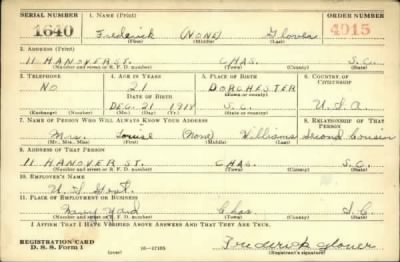 SERIAL NUMBER 1. NAME (Print) ORDER NUMBER
1640 Frederick (NONE) Glover 4915
(First) (Middle) (Last)
2. ADDRESS (Print)
11 HANOVER ST. CHAS. S.C.
(Number and street or R. F. D. number) (Town) (County) (State)
3. TELEPHONE 4. AGE IN YEARS 5. PLACE OF BIRTH 6. COUNTRY OF CITIZENSHIP
NO 21 DORCHESTER
DATE OF BIRTH (Town or county)
DEC. 21 1918 S.C. U.S.A
(Exchange) (Number) (Mo.) (Day) (Yr.) (State or country)
7. NAME OF PERSON WHO WILL ALWAYS KNOW YOUR ADDRESS 8. RELATIONSHIP OF THAT PERSON
Mrs. Louise (None) Williams Second Cousin
(Mr., Mrs., Miss) (First) (Middle) (Last)
9. ADDRESS OF THAT PERSON
11 HANOVER ST. CHAS. S.C.
(Number and street or R. F. D. number) (Town) (County) (State)
10. EMPLOYER'S NAME
U. S. Govt.
11. PLACE OF EMPLOYMENT OR BUSINESS
Navy Yard Chas. S.C.
(Number and street or R. F. D. number) (Town) (County) (State)
I AFFIRM THAT I HAVE VERIFIED ABOVE ANSWERS AND THAT THEY ARE TRUE.
REGISTRATION CARD
D. S. S. Form 1 (over) 16—17105 Frederick Glover
(Registrant's signature)